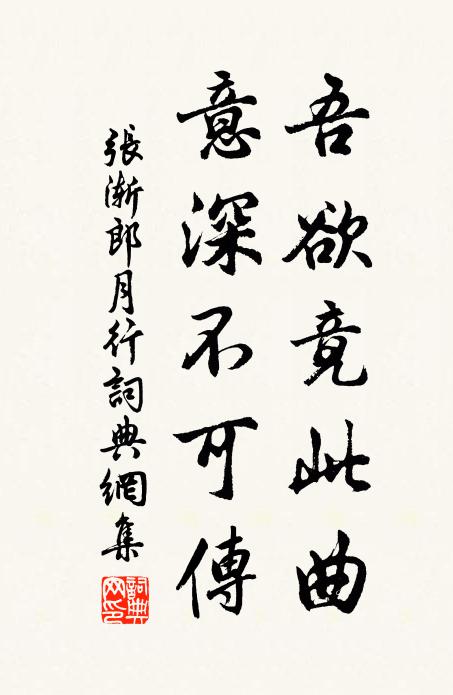 吾欲竟此曲
意深不可傳
張漸郎月行詞典網集
詞典網印